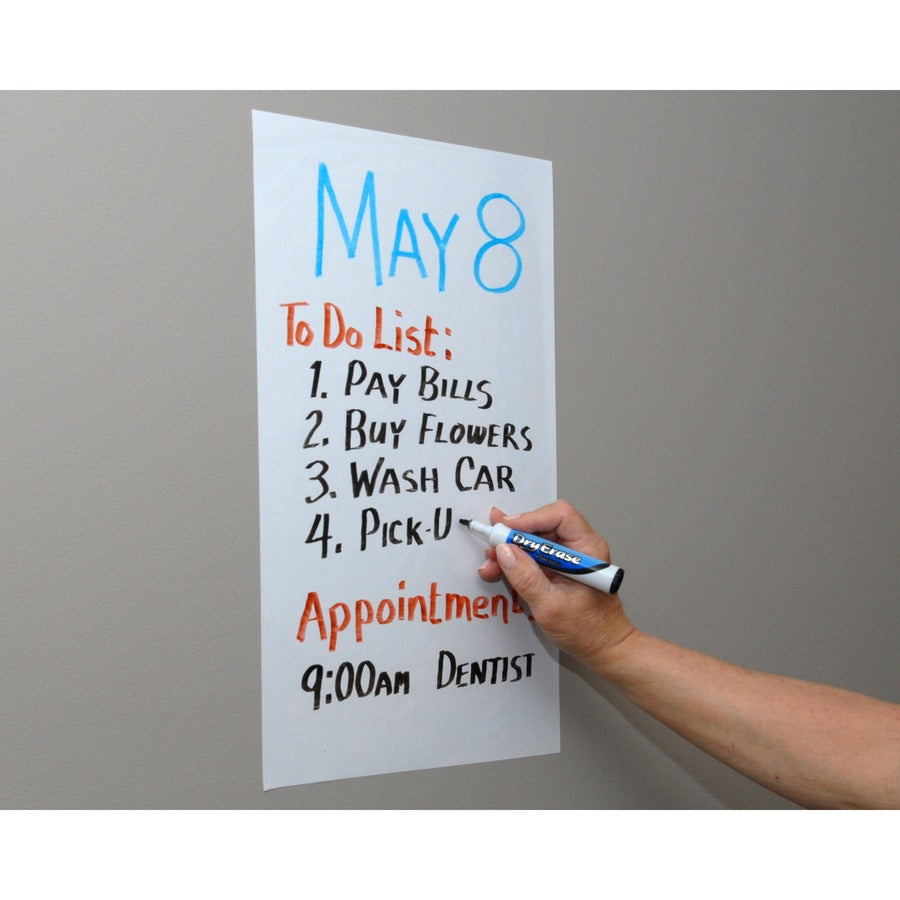 MAY 8
To Do List:
1. PAY BILLS
2. BUY FLOWERS
3. WASH CAR
4. PICK-U
Dry Erase
Appointment
9:00AM DENTIST